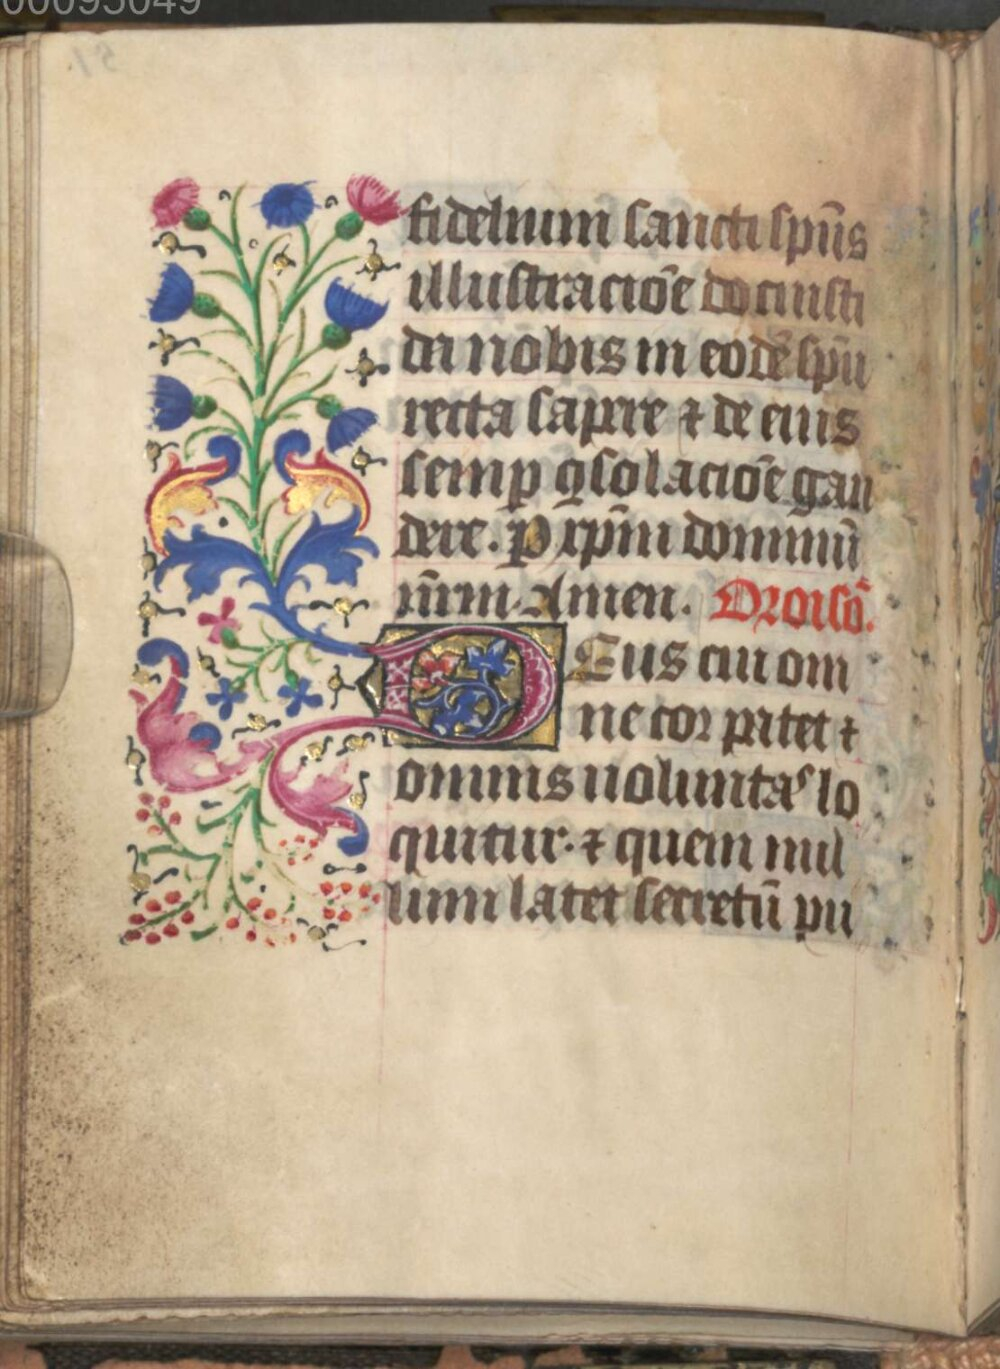 00095049
51.
fidelium sancti sp̄us
illustracio̅e docuisti
da nobis in eode̅ sp̄u
recta sapere ⁊ de eius
semp̱ ꝯsolacio̅e gau
dere. P xp̄m dominu̅
nr̄m. Amen. Oroiso̅.
Deus cui om
ne cor patet ⁊
omnis uoluntas lo
quitur. ⁊ quem nul
lum latet secretu̅ pu